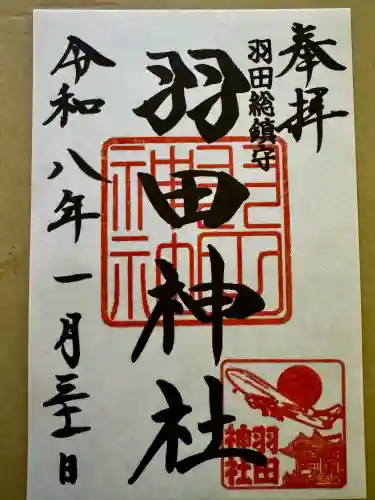 奉拝
羽田総鎮守
羽田神社
令和八年一月三十一日
羽田神社
羽田
神社